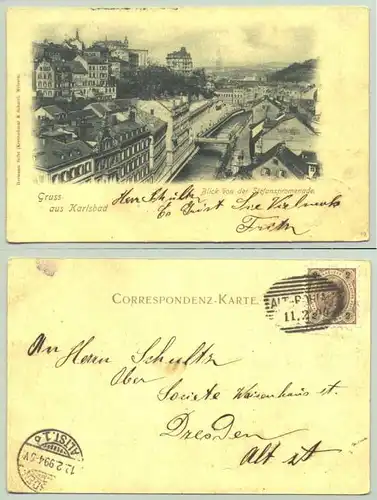 Gruss
aus Karlsbad
Blick von der Stefanspromenade.
Herr Schultz
Fritz
CORRESPONDENZ-KARTE.
ALT-
11.2.
An Herrn Schultz
Ober
Societe Waisenhaus st.
Dresden
Alt st
ALTST. 1.
12.2.99.4-5V